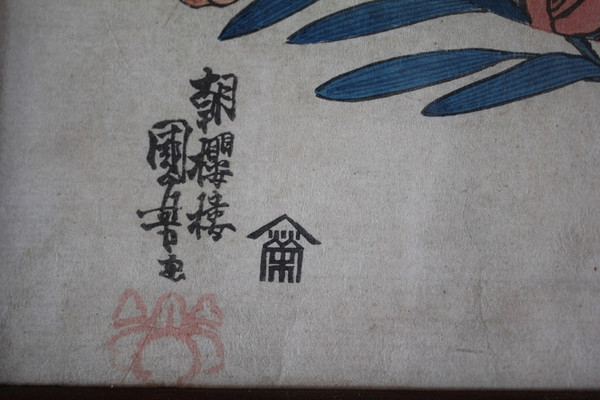 朝櫻楼
國芳画